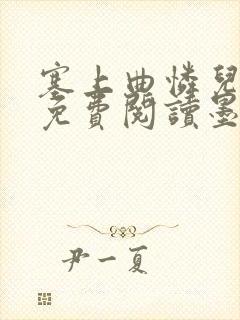 塞上曲憐兒
免費閱讀墨
尹一夏